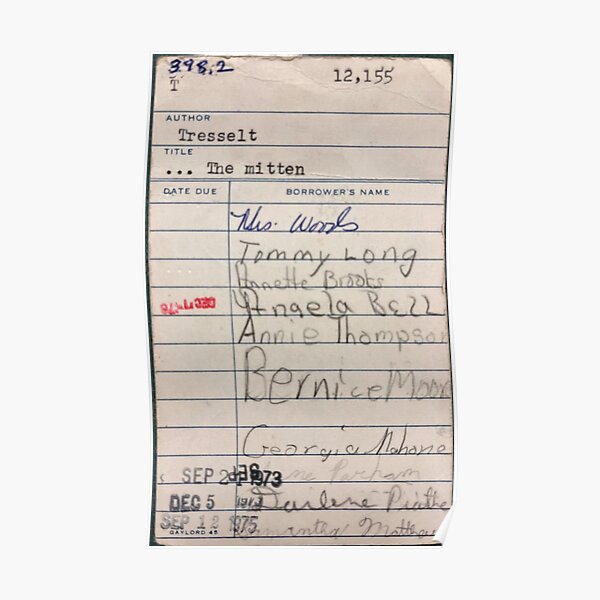 398.2
T 12,155
AUTHOR
Tresselt
TITLE
... The mitten
DATE DUE BORROWER'S NAME
Mrs. Woods
Tommy Long
Annette Brooks
Angela BELL
Annie Thompson
Bernice Moor
Georgia Mahone
SEP 2 1973 Parham
DEC 5 1973 Darlene
SEP 12 1975
GAYLORD 45